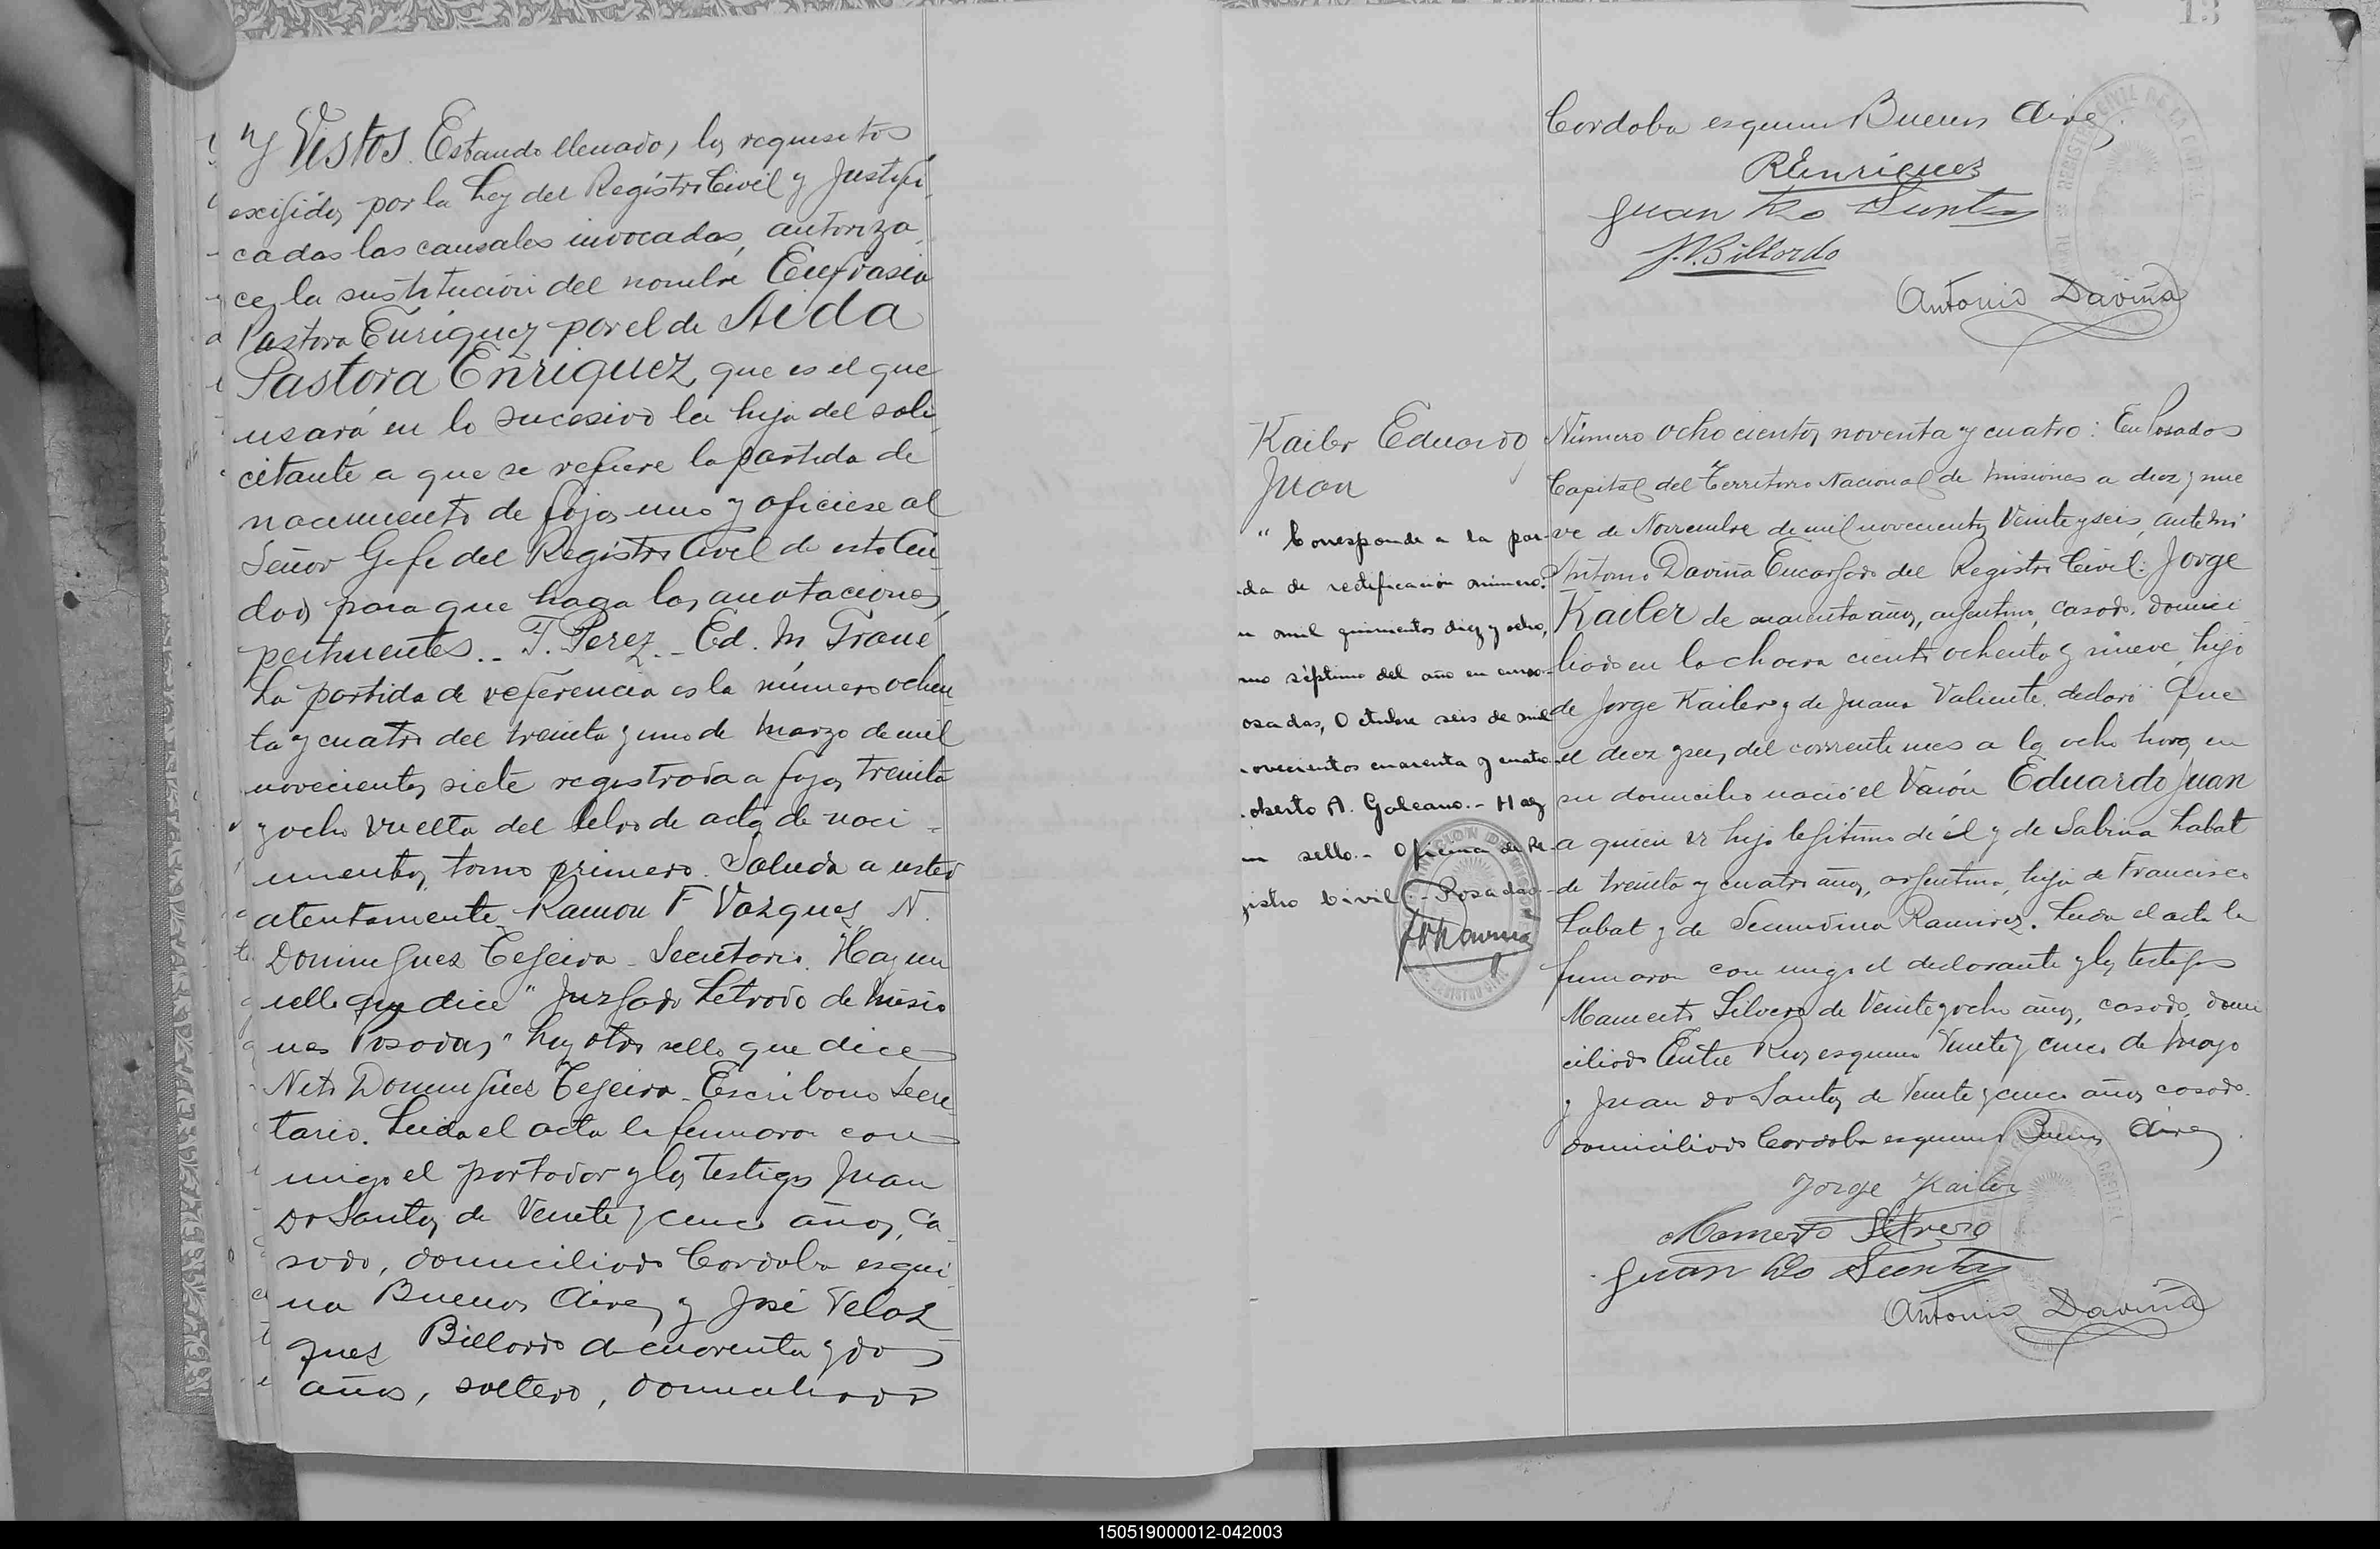 "Y Vistos. Estando llenados los requisitos
exigidos por la Ley del Registro Civil y justifi
cadas las causales invocadas, autoriza
ce la sustitución del nombre Eufrasia
Pastora Enriquez por el de Aida
Pastora Enriquez, que es el que
usará en lo sucesivo la hija del soli
citante a que se refiere la partida de
nacimiento de fojas uno y oficiese al
Señor Gefe del Registro Civil de esta Ciu
dad para que haga las anotaciones
pertinentes.- T. Perez.- Ed. M.
La partida de referencia es la número ochen
ta y cuatro del treinta y uno de Marzo de mil
novecientos siete registrada a fojas treinta
y ocho vuelta del libro de actas de naci-
mientos, tomo primero. Saluda a usted
atentamente Ramon F Vazquez N.
Dominguez Tejeira - Secretario. Hay un
sello que dice "Juzgado Letrado de Misio
nes Posadas" hay otro sello que dice
Neto Dominguez Tejeira - Escribano Secre
tario. Leida el acta la firmaron con
migo el portador y los testigos Juan
Do Santos de Veinte y cinco años, ca
sado, domiciliado Cordoba esqui
na Buenos Aires y José Velaz
quez Billordo de cuarenta y dos
años, soltero, domiciliado
13
Cordoba esquina Buenos Aires.
R Enriquez
Juan Do Santos
J.V. Billordo
Antonio Daviña
Kailer Eduardo
Juan
"Corresponde a la par-
da de rectificación número
mil quinientos diez y ocho,
mo séptimo del año en curso.-
osadas, Octubre seis de mil
ovecientos cuarenta y cuatro
oberto A. Galeano.- Hay
un sello.- Oficina de Re-
gistro Civil.- Posadas.-
Número ochocientos noventa y cuatro: En Posadas
Capital del Territorio Nacional de Misiones a diez y nue
ve de Noviembre de mil novecientos Veinte y seis, ante mi
Antonio Daviña Encargado del Registro Civil: Jorge
Kailer de cuarenta años, argentino, casado, domici
liado en la chacra ciento ochenta y nueve, hijo
de Jorge Kailer y de Juana Valiente, declaró: Que
el diez y seis del corriente mes a las ocho horas en
su domicilio nació el Varón Eduardo Juan
a quien es hijo legitimo de él y de Sabina Labat
de treinta y cuatro años, argentina, hija de Francisco
Labat y de Secundina Ramirez. Leida el acta la
firmaron con migo el declarante y los testigos
Mamerto Silvero de Veinte y ocho años, casado, domi
ciliado Entre Rios esquina Veinte y cinco de Mayo
y Juan do Santos de Veinte y cinco años casado.
domiciliado Cordoba esquina Buenos Aires.
Jorge Kailer
Mamerto Silvero
Juan Do Santos
Antonio Daviña
150519000012-042003